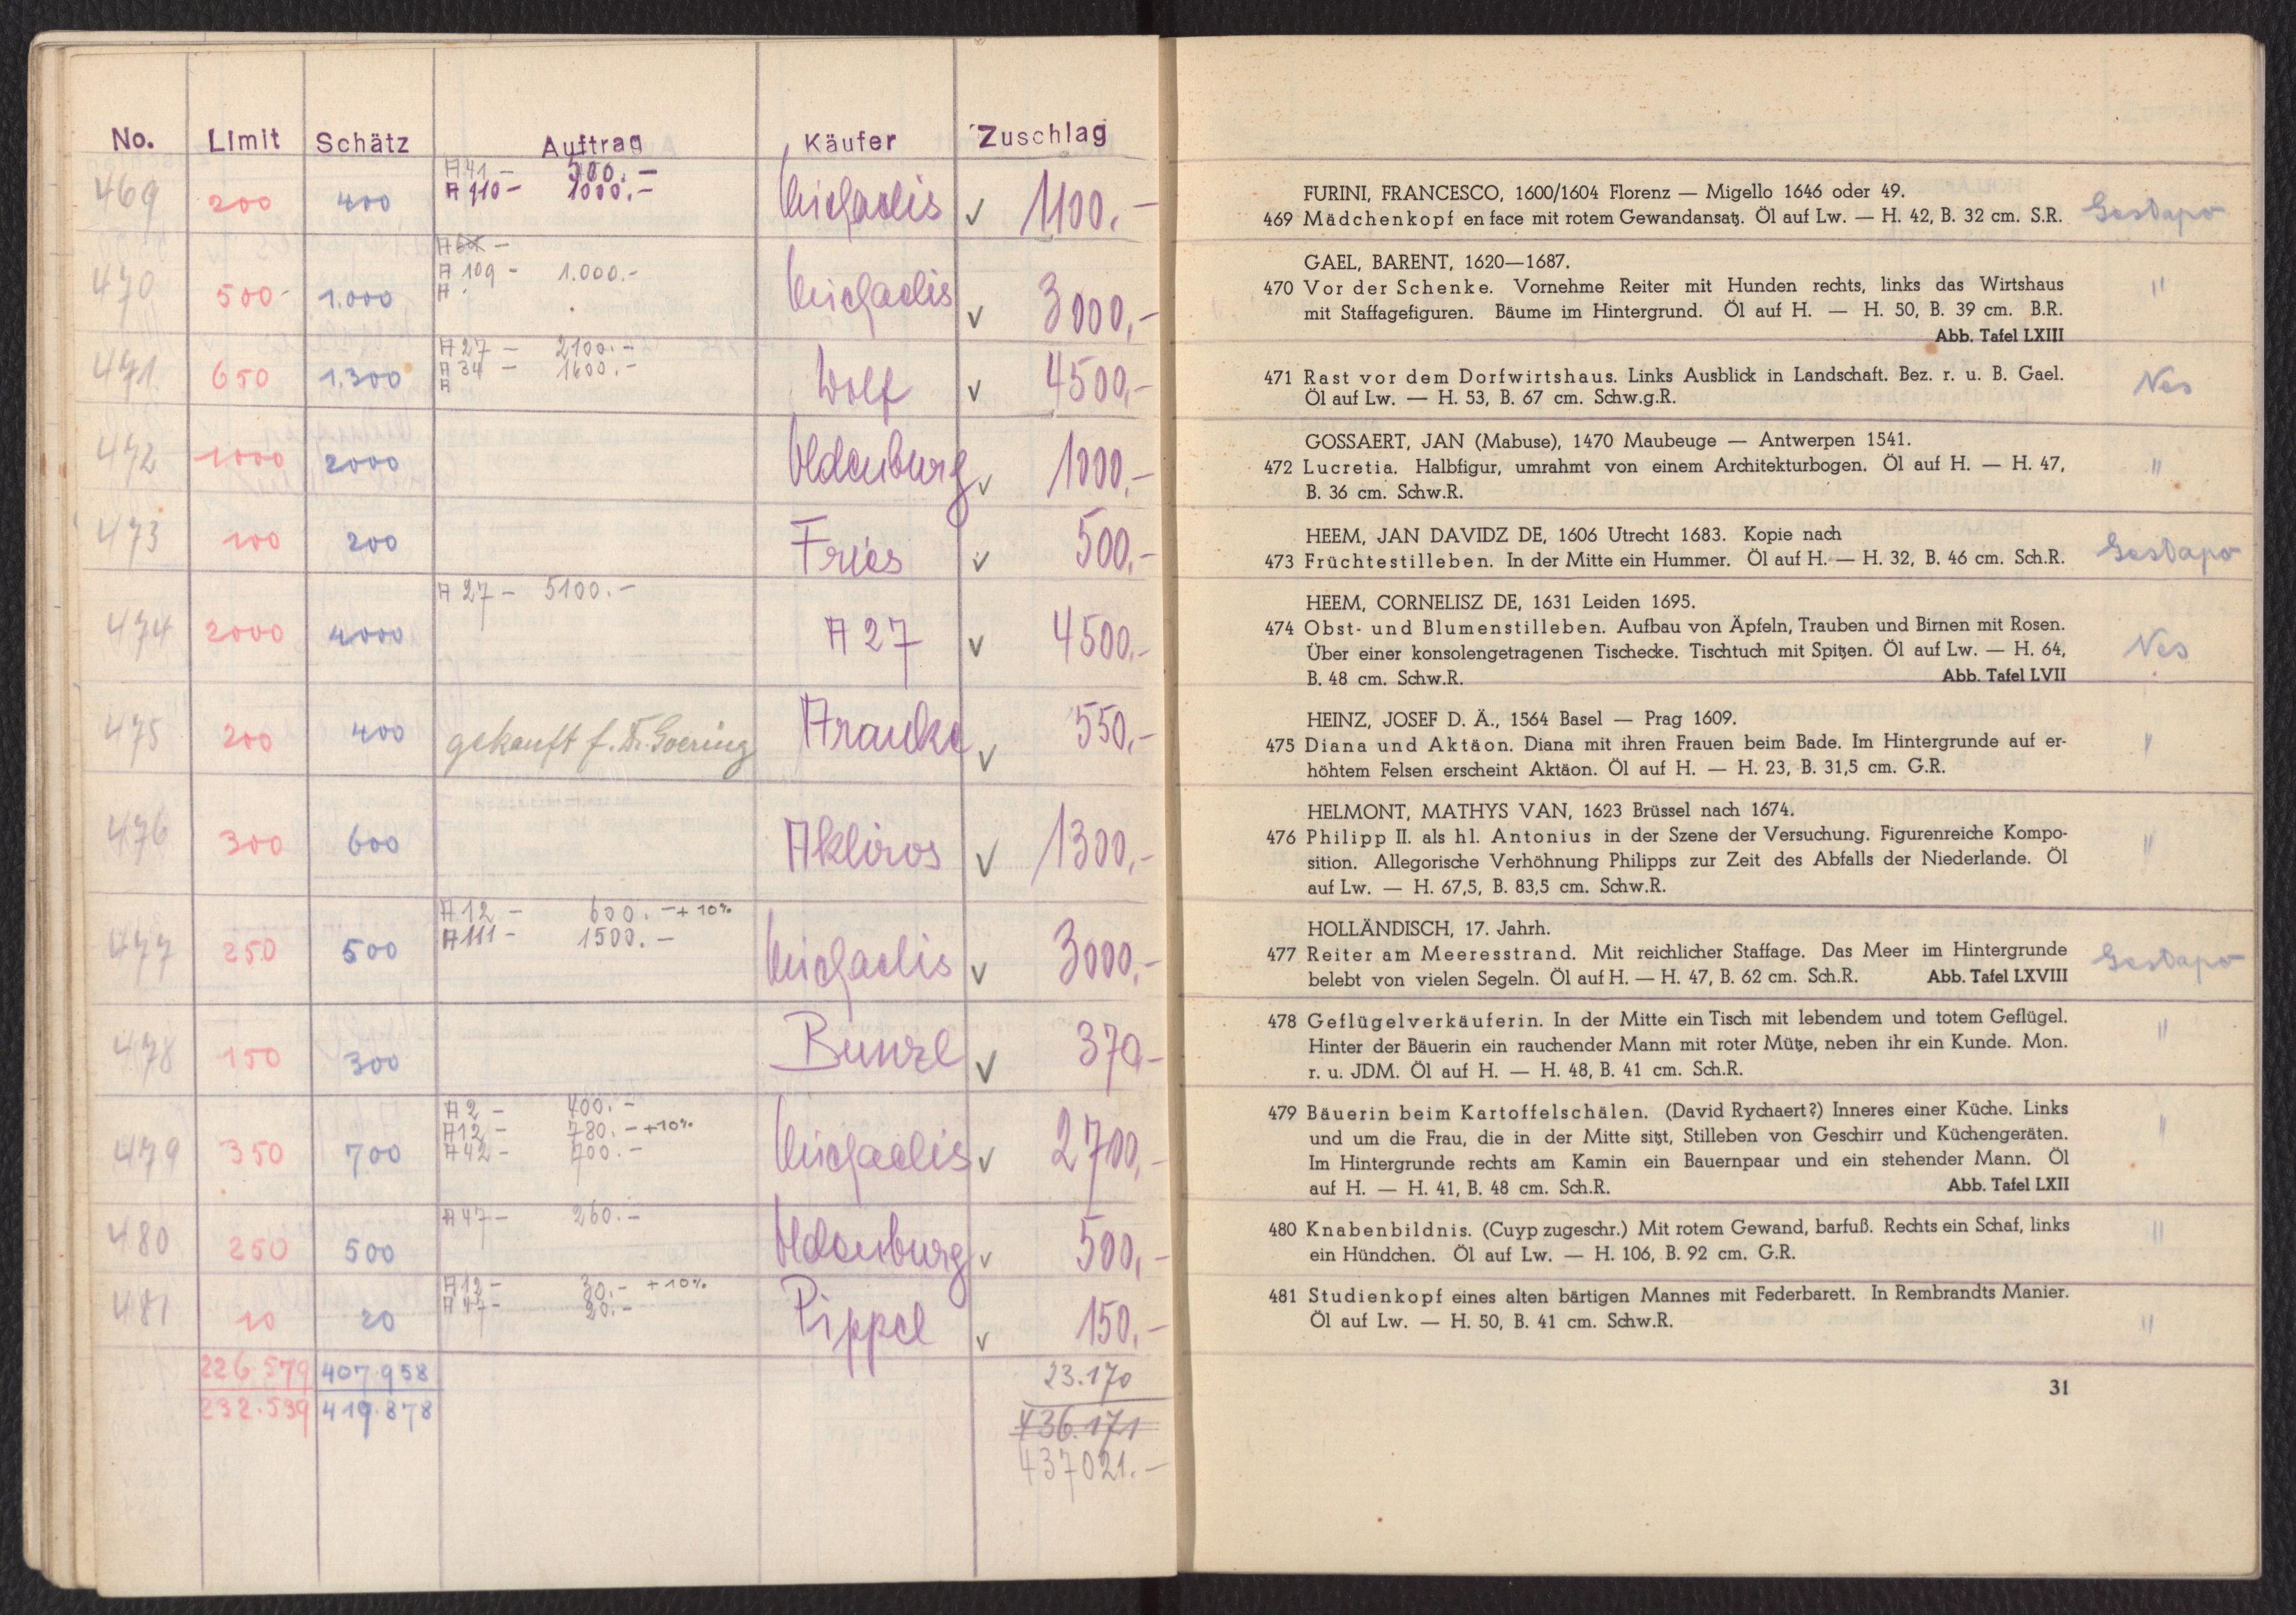 No. Limit Schätz Auftrag Käufer Zuschlag
A 41 — 500.—
469 200 400 A 110 — 1000.— Michaelis √ 1100.—
A —
A 109 — 1.000.—
470 500.- 1.000 A Michaelis √ 3000,—
A 27 — 2100.—
471 650 1.300 A 34 — 1600.— Wolf √ 4500,—
A
472 1000 2000 Oldenburg √ 1000,—
473 100 200 Fries √ 500,—
A 27 — 5100.—
474 2000 4000 A 27 √ 4500.—
475 200 400 gekauft f. Dr. Goering Fraucke √ 550,—
476 300 600 Akliros √ 1300,—
A 12 — 600.— + 10%
A 111 — 1500.—
477 250 500 Michaelis √ 3000,—
478 150 300 Bunzl √ 370—
A 2 — 400.—
A 12 — 780.— + 10%
479 350 700 A 42 — 700.— Michaelis √ 2700,—
A 47 — 260.—
480 250 500 Oldenburg √ 500,—
A 12 — 30.— + 10%
A 47 — 20.—
481 10 20 Pippel √ 150,—
226.579 407.958 23.170
232.539 419.878 436.171
437021.—
FURINI, FRANCESCO, 1600/1604 Florenz — Migello 1646 oder 49.
469 Mädchenkopf en face mit rotem Gewandansatz. Öl auf Lw. — H. 42, B. 32 cm. S.R. Gestapo
GAEL, BARENT, 1620—1687.
470 Vor der Schenke. Vornehme Reiter mit Hunden rechts, links das Wirtshaus "
mit Staffagefiguren. Bäume im Hintergrund. Öl auf H. — H. 50, B. 39 cm. B.R.
Abb. Tafel LXIII
471 Rast vor dem Dorfwirtshaus. Links Ausblick in Landschaft. Bez. r. u. B. Gael. Nes
Öl auf Lw. — H. 53, B. 67 cm. Schw.g.R.
GOSSAERT, JAN (Mabuse), 1470 Maubeuge — Antwerpen 1541.
472 Lucretia. Halbfigur, umrahmt von einem Architekturbogen. Öl auf H. — H. 47, "
B. 36 cm. Schw.R.
HEEM, JAN DAVIDZ DE, 1606 Utrecht 1683. Kopie nach
473 Früchtestilleben. In der Mitte ein Hummer. Öl auf H. — H. 32, B. 46 cm. Sch.R. Gestapo
HEEM, CORNELISZ DE, 1631 Leiden 1695.
474 Obst- und Blumenstilleben. Aufbau von Äpfeln, Trauben und Birnen mit Rosen.
Über einer konsolengetragenen Tischecke. Tischtuch mit Spitzen. Öl auf Lw. — H. 64, Nes
B. 48 cm. Schw.R. Abb. Tafel LVII
HEINZ, JOSEF D. Ä., 1564 Basel — Prag 1609.
475 Diana und Aktäon. Diana mit ihren Frauen beim Bade. Im Hintergrunde auf er- "
höhtem Felsen erscheint Aktäon. Öl auf H. — H. 23, B. 31,5 cm. G.R.
HELMONT, MATHYS VAN, 1623 Brüssel nach 1674.
476 Philipp II. als hl. Antonius in der Szene der Versuchung. Figurenreiche Kompo- "
sition. Allegorische Verhöhnung Philipps zur Zeit des Abfalls der Niederlande. Öl
auf Lw. — H. 67,5, B. 83,5 cm. Schw.R.
HOLLÄNDISCH, 17. Jahrh.
477 Reiter am Meeresstrand. Mit reichlicher Staffage. Das Meer im Hintergrunde Gestapo
belebt von vielen Segeln. Öl auf H. — H. 47, B. 62 cm. Sch.R. Abb. Tafel LXVIII
478 Geflügelverkäuferin. In der Mitte ein Tisch mit lebendem und totem Geflügel. "
Hinter der Bäuerin ein rauchender Mann mit roter Mütze, neben ihr ein Kunde. Mon.
r. u. JDM. Öl auf H. — H. 48, B. 41 cm. Sch.R.
479 Bäuerin beim Kartoffelschälen. (David Rychaert?) Inneres einer Küche. Links "
und um die Frau, die in der Mitte sitzt, Stilleben von Geschirr und Küchengeräten.
Im Hintergrunde rechts am Kamin ein Bauernpaar und ein stehender Mann. Öl
auf H. — H. 41, B. 48 cm. Sch.R. Abb. Tafel LXII
480 Knabenbildnis. (Cuyp zugeschr.) Mit rotem Gewand, barfuß. Rechts ein Schaf, links "
ein Hündchen. Öl auf Lw. — H. 106, B. 92 cm. G.R.
481 Studienkopf eines alten bärtigen Mannes mit Federbarett. In Rembrandts Manier.
Öl auf Lw. — H. 50, B. 41 cm. Schw.R. "
31